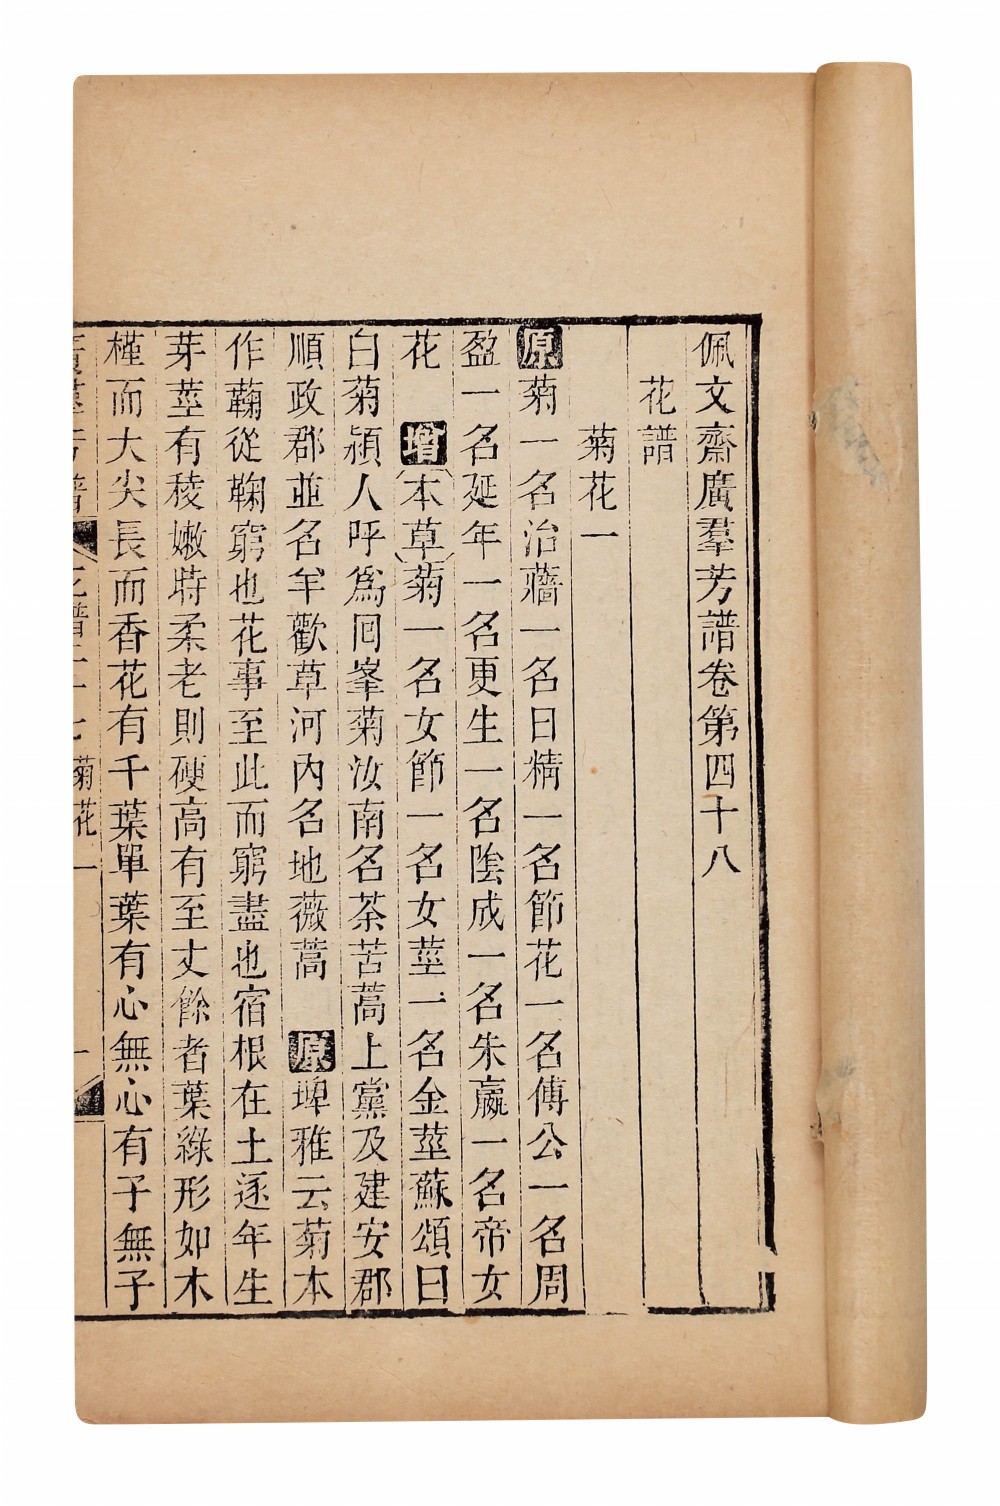 佩文齋廣羣芳譜卷第四十八
花譜
菊花一
原菊一名治蘠一名日精一名節花一名傅公一名周
盈一名延年一名更生一名陰成一名朱嬴一名帝女
花 增本草菊一名女節一名女莖一名金莖蘇頌曰
白菊潁人呼爲回峯菊汝南名荼苦蒿上黨及建安郡
順政郡並名羊歡草河内名地薇蒿 原埤雅云菊本
作蘜從鞠窮也花事至此而窮盡也宿根在土逐年生
芽莖有稜嫩時柔老則硬高有至丈餘者葉綠形如木
槿而大尖長而香花有千葉單葉有心無心有子無子
廣羣芳譜 花譜二十七 菊花一 一